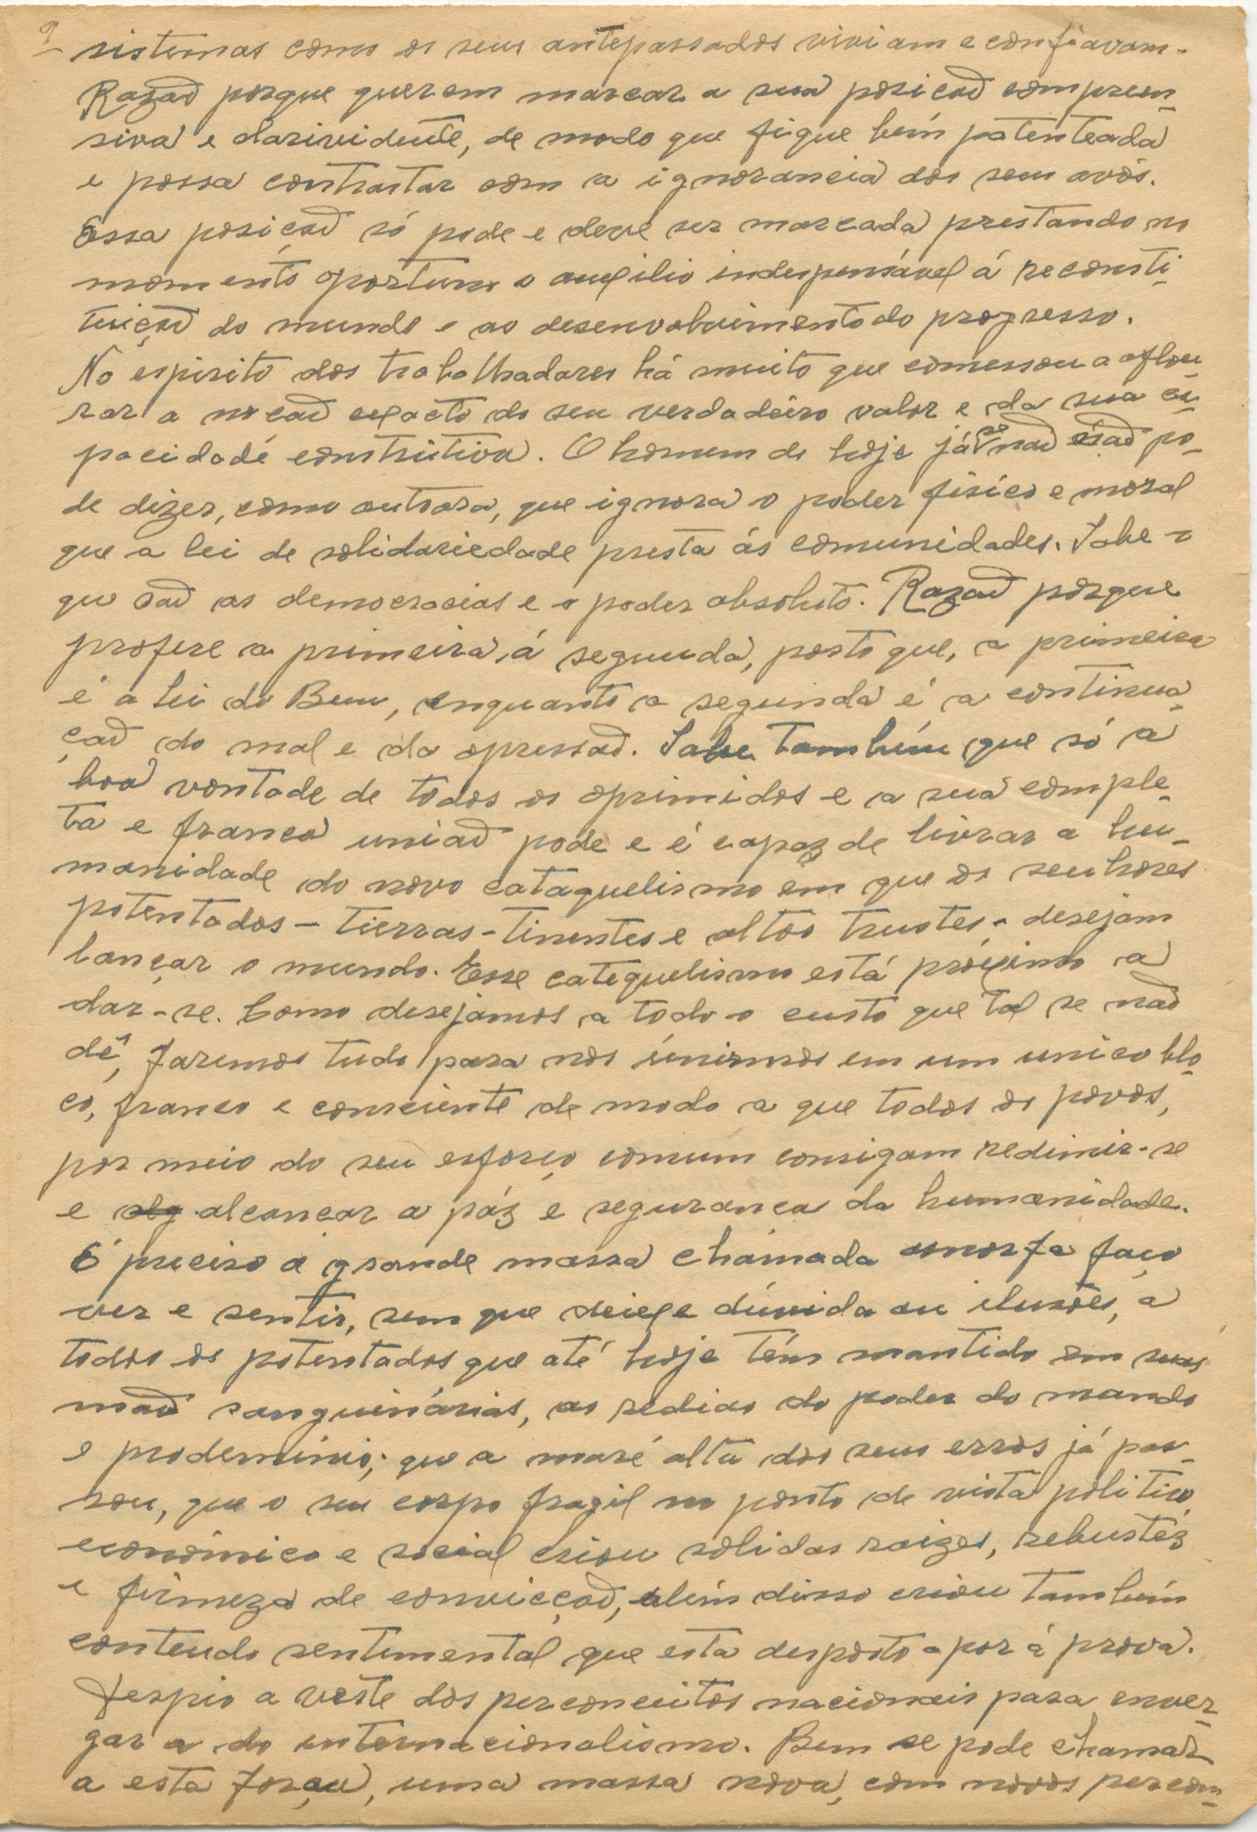 9 sistemas como os seus antepassados viviam e confiavam.
Razaõ porque querem marcar a sua posicaõ compreen-
siva e clarividente, de modo que fique bem patenteada
e possa contrastar com a ignorancia dos seus avós.
Essa posiçaõ só pode e deve ser marcada prestando no
momento oportuno o auxilio indespensável á reconsti-
tuiçaõ do mundo e ao desenvolvimento do progresso.
No espirito dos trabalhadores há muito que comessou a aflou-
rar a nocaõ exacta do seu verdadeiro valor e da sua ca-
pacidade construtiva. O homem de hoje já naõ po-
de dizer, como outrora, que ignora o poder fisico e moral
que a lei de solidariedade presta ás comunidades. Sabe o
que saõ as democracias e o poder absoluto. Razaõ porque
prefere a primeira, á segunda, posto que, a primeira
é a lei do Bem, enquanto a segunda é a continua-
çaõ do mal e da opressaõ. Sabe tambêm que só a
boa vontade de todos os oprimidos e a sua comple-
ta e franca uniaõ pode e é capaz de livrar a hu-
manidade do novo cataquelismo em que os senhores
potentados - tierras-tinentes e altos trustes - desejam
lançar o mundo. Esse catequelismo está próximo a
dar-se. Como desejamos a todo o custo que tal se naõ
dê, faremos tudo para nos únirmos em um unico blo-
co, franco e consciente de modo a que todos os povos,
por meio do seu esforço comum consigam redimir-se
e alcancar a páz e seguranca da humanidade.
É preciso a grande massa chamada amorfa faço
ver e sentir, sem que deixe dúvida ou ilusões, a
todos os potentados que até hoje têm mantido em suas
maõ sanguinárias, as redias do poder do mando
e prodeminio; que a maré alta dos seus erros já pas-
sou, que o seu corpo fragil no ponto de vista politico,
económico e social criou solidas raizes, rebustéz
e firmeza de convicçaõ, alêm disso criou tambêm
conteudo sentimental que esta desposto a por á prova.
Despio a veste dos perconceitos nacionais para enver-
gar a do internacionalismo. Bem se pode chamar
a esta força, uma massa nova, com novos percon-